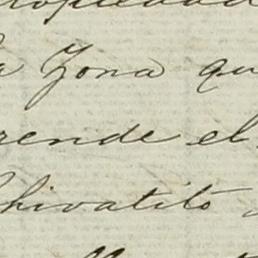 ropiedad
a Zona qu
rende el
Chivatito